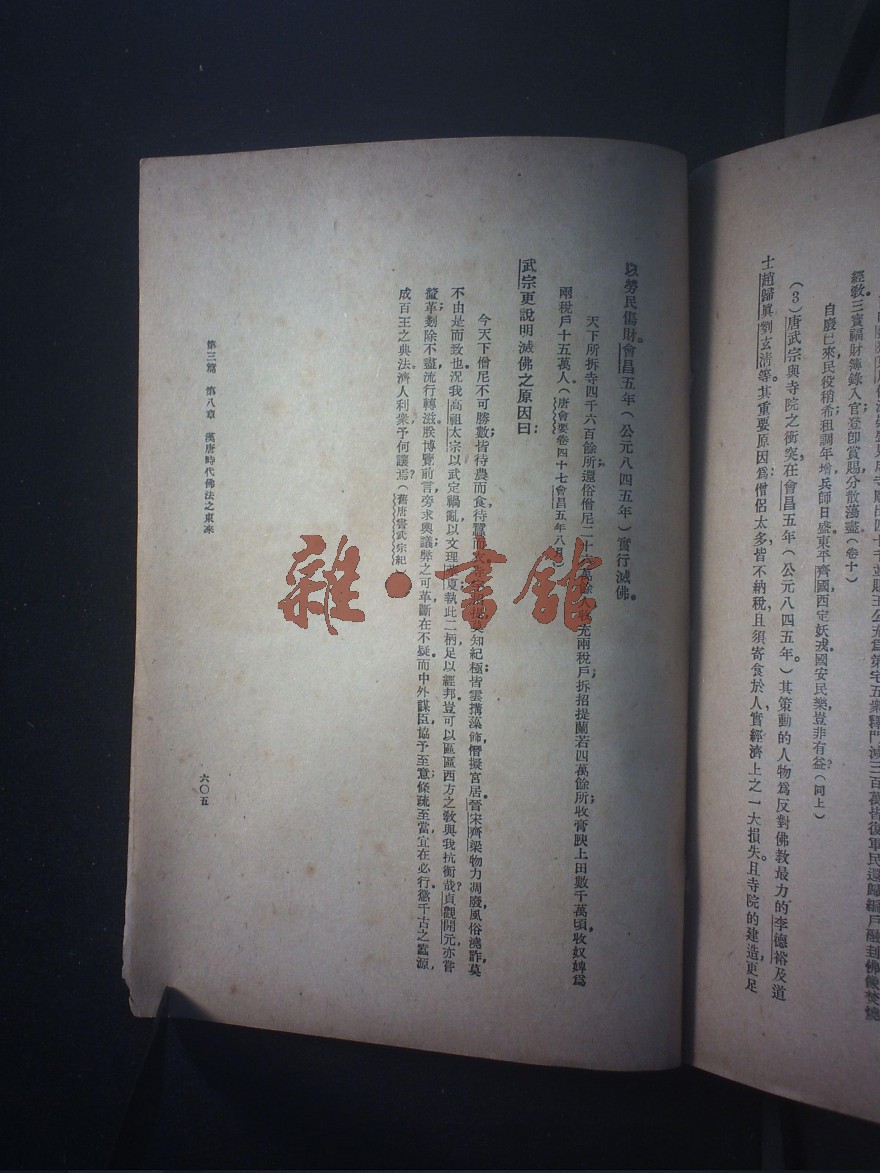 經敎三寶福財簿錄入官登卽賞賜分散蕩盡(卷十)
自廢已來,民役稍希,租調年增,兵師日盛,東平齊國,西定妖戎,國安民樂,豈非有益?(同上)
(3)唐武宗與寺院之衝突,在會昌五年(公元八四五年。)其策動的人物爲反對佛教最力的李德裕及道
士趙歸眞劉玄淸等。其重要原因,爲僧侶太多,皆不納稅,且須寄食於人,實經濟上之一大損失。且寺院的建造,更足
以勞民傷財。會昌五年(公元八四五年)實行滅佛。
天下所拆寺四千六百餘所,還俗僧尼二十六萬餘人,收充兩稅戶,拆招提蘭若四萬餘所,收膏腴上田數千萬頃,收奴婢爲
兩稅戶十五萬人(唐會要卷四十七會昌五年八月)
武宗更說明滅佛之原因曰:
今天下僧尼不可勝數,皆待農而食,待蠶而 莫知紀極;皆雲搆藻飾,僭擬宮居。晉宋齊梁,物力凋廢,風俗澆詐,莫
不由是而致也。況我高祖太宗以武定禍亂,以文理 夏,執此二柄,足以經邦。豈可以區區西方之敎,與我抗衡哉?貞觀開元,亦嘗
釐革,剗除不盡,流行轉滋。朕博覽前言,旁求輿議,弊之可革,斷在不疑;而中外謀臣,協予至意,條疏至當,宜在必行。懲千古之蠹源,
成百王之典法。濟人利衆,予何讓焉?(舊唐書武宗紀)
第三篇 第八章 漢唐時代佛法之東來
六〇五
雜·書館